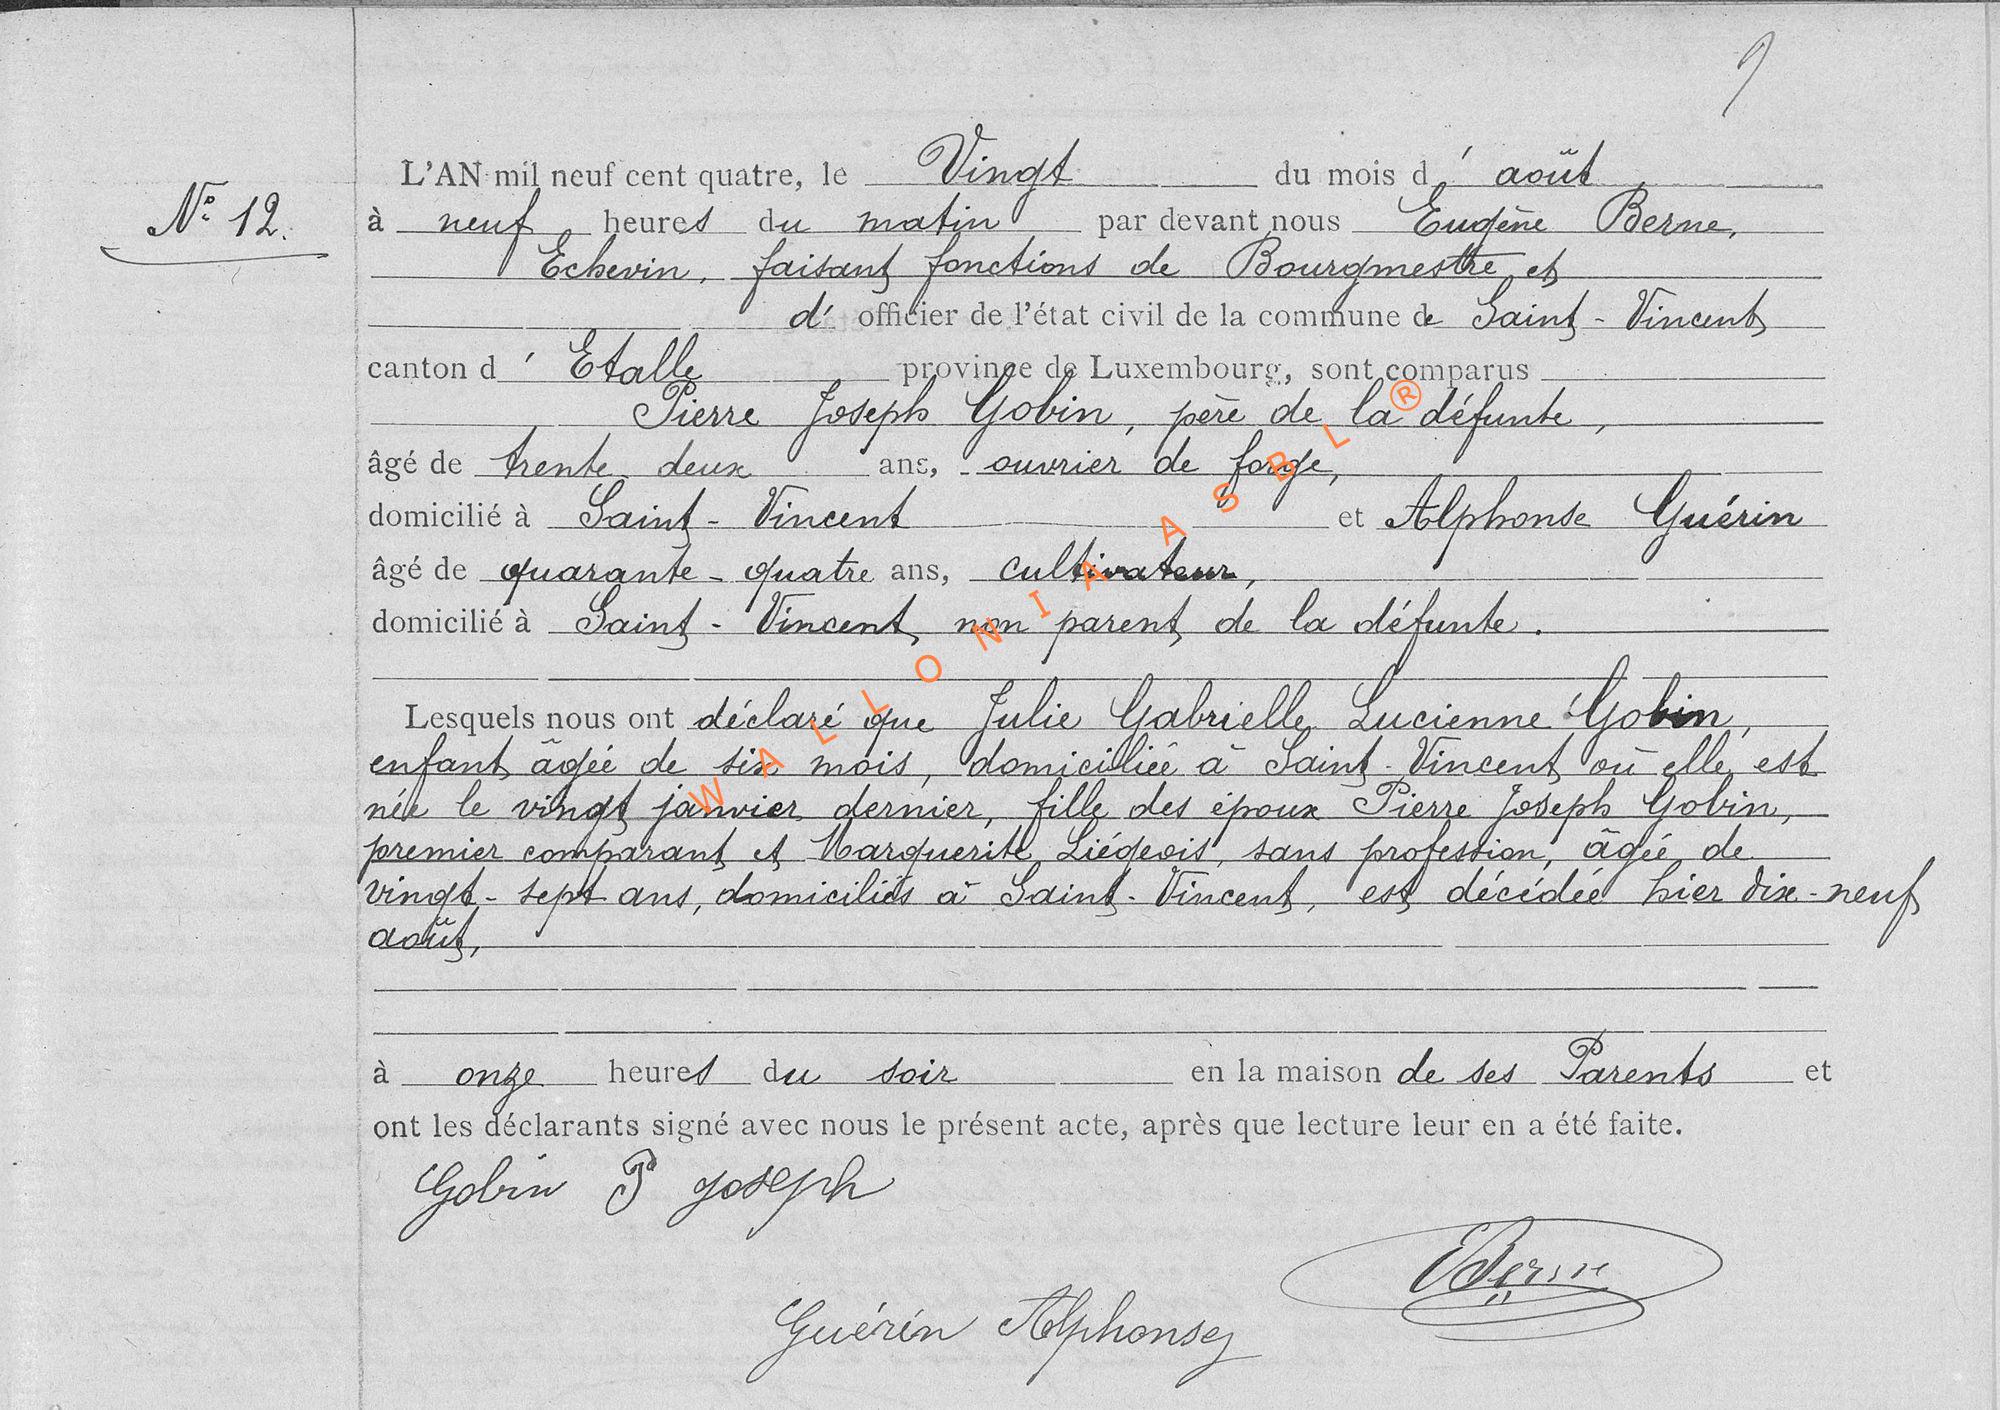 9
Nº 12.
L'AN mil neuf cent quatre, le Vingt du mois d'août
à neuf heures du matin par devant nous Eugène Berne,
Echevin, faisant fonctions de Bourgmestre et
d' officier de l'état civil de la commune de Saint-Vincent
canton d'Etalle province de Luxembourg, sont comparus
Pierre Joseph Gobin, père de la défunte,
âgé de trente deux ans, ouvrier de forge,
domicilié à Saint-Vincent et Alphonse Guérin
âgé de quarante-quatre ans, cultivateur,
domicilié à Saint-Vincent, non parent de la défunte.
Lesquels nous ont déclaré que Julie Gabrielle Lucienne Gobin,
enfant âgée de six mois, domiciliée à Saint-Vincent où elle est
née le vingt janvier dernier, fille des époux Pierre Joseph Gobin,
premier comparant et Marguerite Liégeois, sans profession, âgée de
vingt-sept ans, domiciliés à Saint-Vincent, est décédée hier dix-neuf
août,
à onze heures du soir en la maison de ses Parents et
ont les déclarants signé avec nous le présent acte, après que lecture leur en a été faite.
Gobin P Joseph
EBerne
Guérin Alphonse
WALLONIA ASBL ®